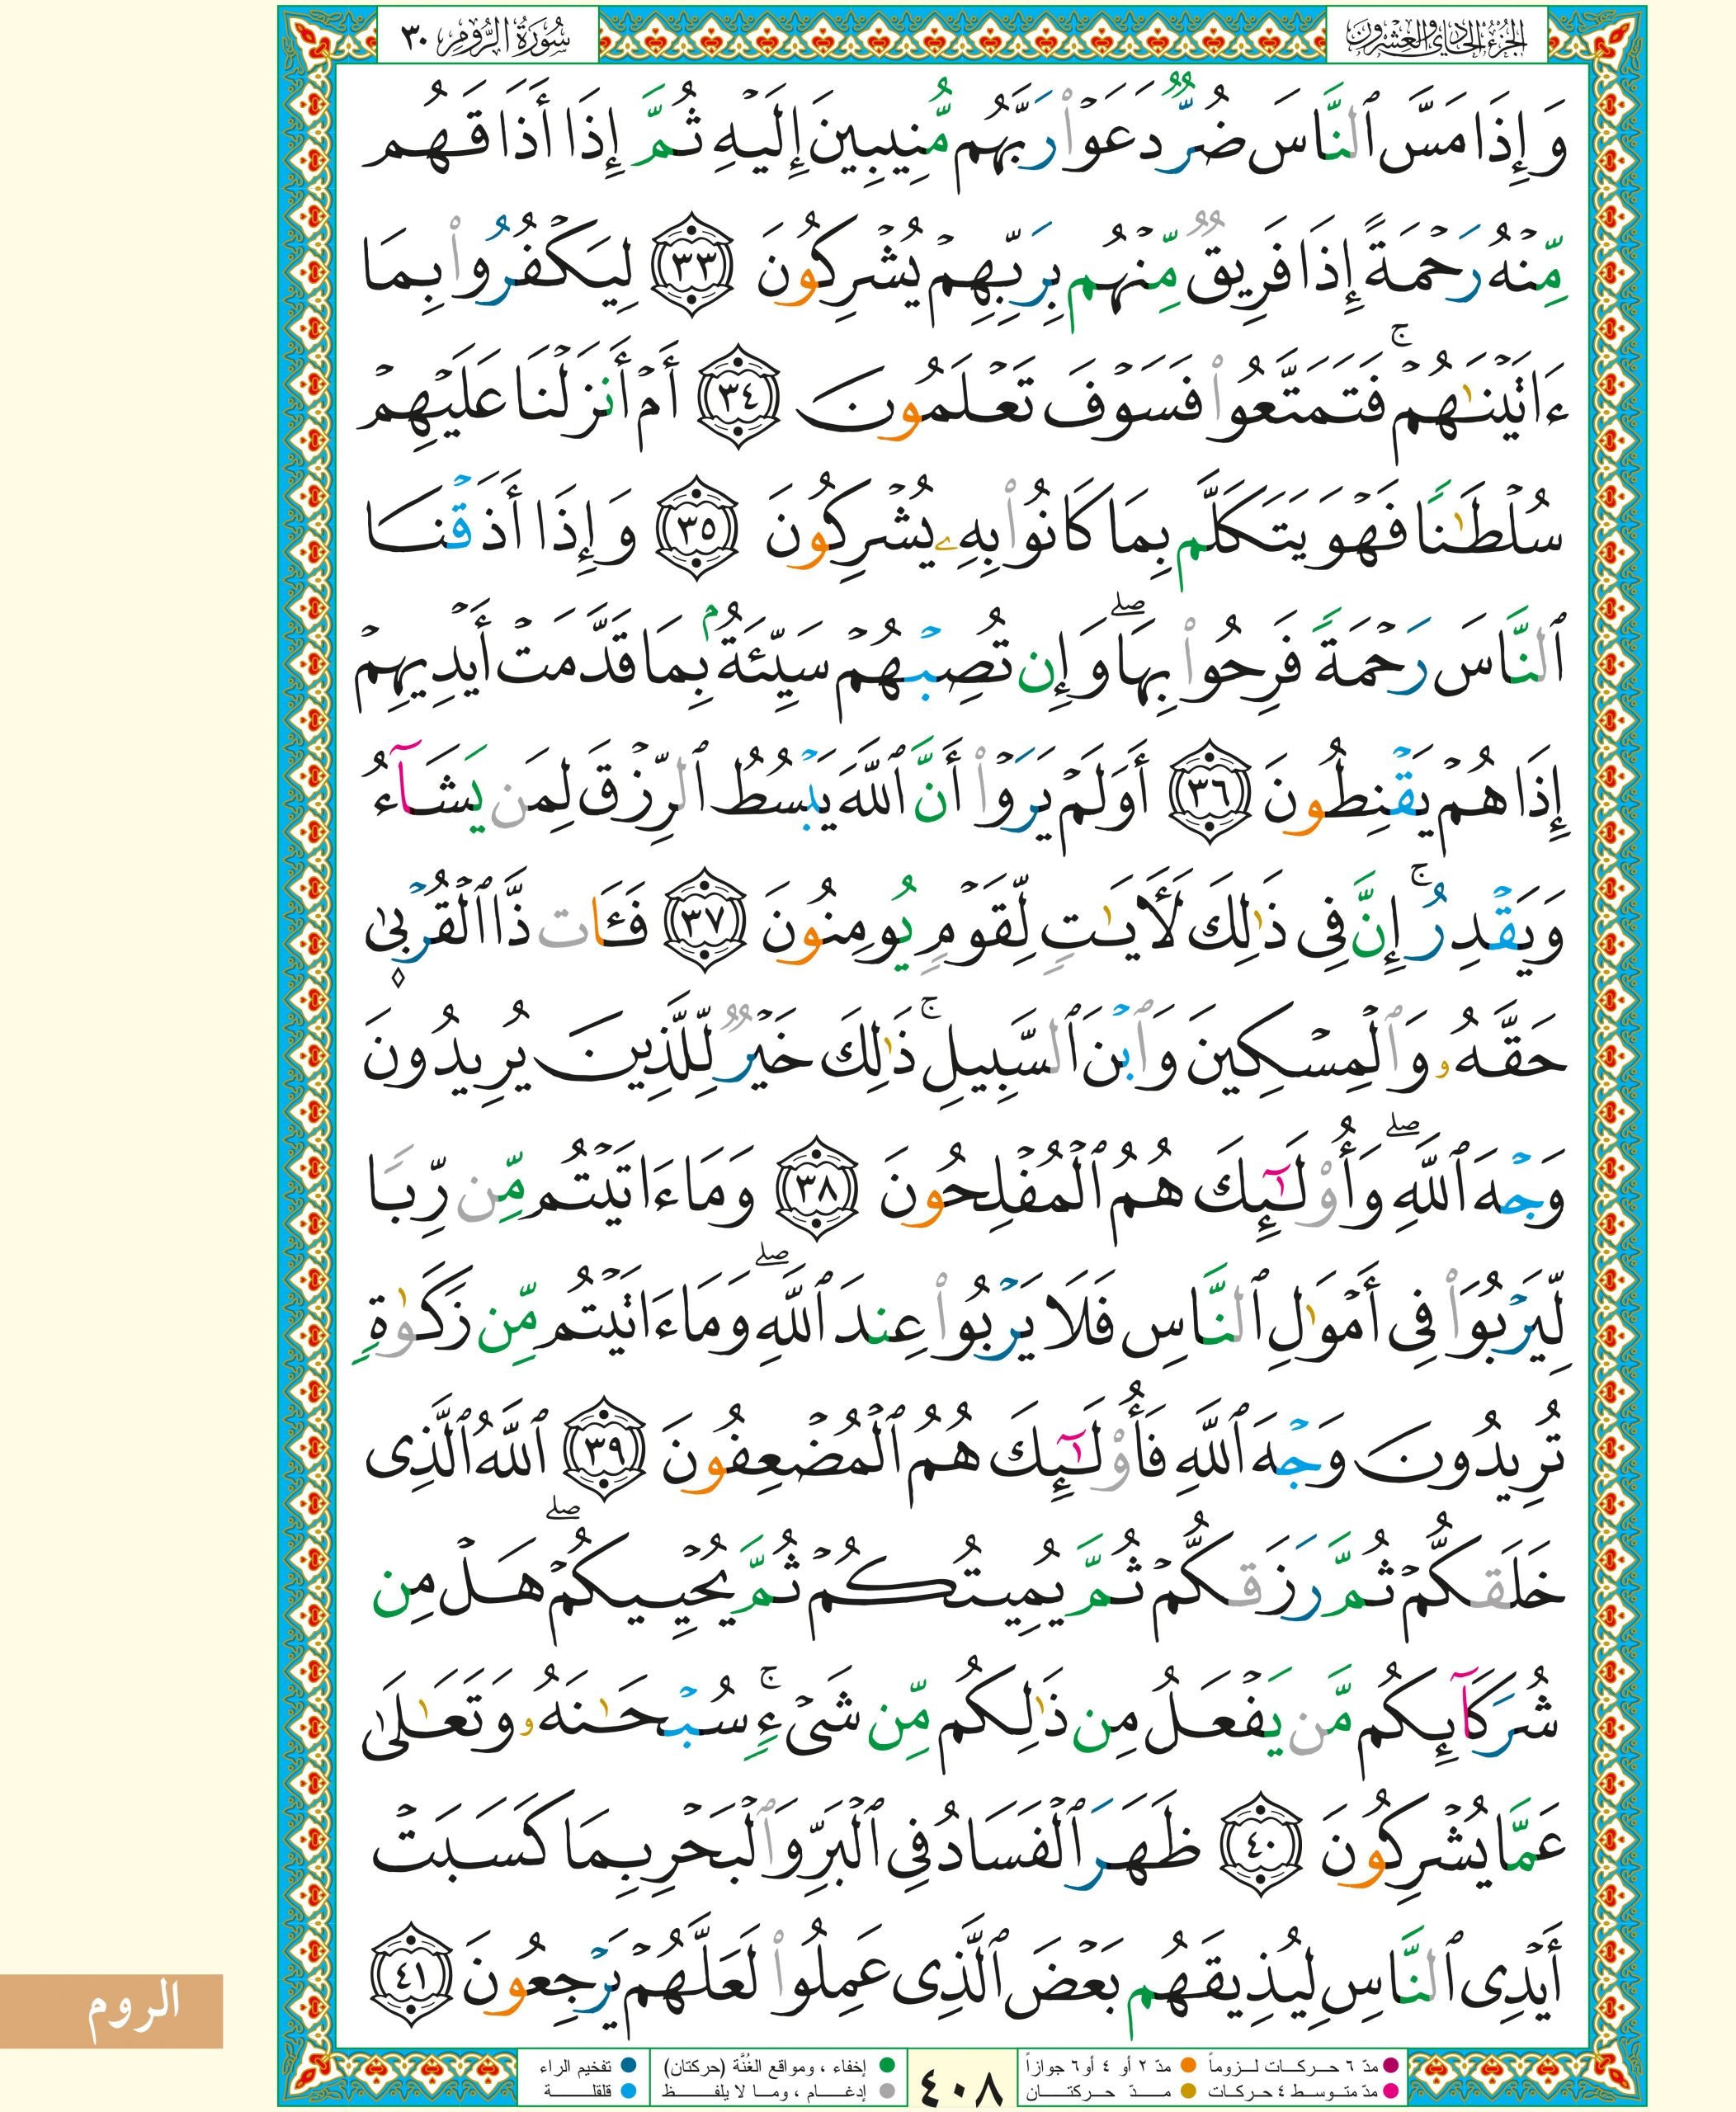 الجزء الحادي والعشرون
سورة الروم ٣٠
وَإِذَا مَسَّ ٱلنَّاسَ ضُرٌّ دَعَوْا۟ رَبَّهُم مُّنِيبِينَ إِلَيْهِ ثُمَّ إِذَا أَذَاقَهُم
مِّنْهُ رَحْمَةً إِذَا فَرِيقٌ مِّنْهُم بِرَبِّهِمْ يُشْرِكُونَ ٣٣ لِيَكْفُرُوا۟ بِمَا
ءَاتَيْنَٰهُمْ ۚ فَتَمَتَّعُوا۟ فَسَوْفَ تَعْلَمُونَ ٣٤ أَمْ أَنزَلْنَا عَلَيْهِمْ
سُلْطَٰنًا فَهُوَ يَتَكَلَّمُ بِمَا كَانُوا۟ بِهِۦ يُشْرِكُونَ ٣٥ وَإِذَا أَذَقْنَا
ٱلنَّاسَ رَحْمَةً فَرِحُوا۟ بِهَا ۖ وَإِن تُصِبْهُمْ سَيِّئَةٌۢ بِمَا قَدَّمَتْ أَيْدِيهِمْ
إِذَا هُمْ يَقْنَطُونَ ٣٦ أَوَلَمْ يَرَوْا۟ أَنَّ ٱللَّهَ يَبْسُطُ ٱلرِّزْقَ لِمَن يَشَآءُ
وَيَقْدِرُ ۚ إِنَّ فِى ذَٰلِكَ لَأَيَٰتٍ لِّقَوْمٍ يُومِنُونَ ٣٧ فَـَٔاتِ ذَا ٱلْقُرْبَىٰ
حَقَّهُۥ وَٱلْمِسْكِينَ وَٱبْنَ ٱلسَّبِيلِ ۚ ذَٰلِكَ خَيْرٌ لِّلَّذِينَ يُرِيدُونَ
وَجْهَ ٱللَّهِ ۖ وَأُو۟لَٰٓئِكَ هُمُ ٱلْمُفْلِحُونَ ٣٨ وَمَا ءَاتَيْتُم مِّن رِّبًا
لِّيَرْبُوَا۟ فِى أَمْوَٰلِ ٱلنَّاسِ فَلَا يَرْبُوا۟ عِندَ ٱللَّهِ ۖ وَمَا ءَاتَيْتُم مِّن زَكَوٰةٍ
تُرِيدُونَ وَجْهَ ٱللَّهِ فَأُو۟لَٰٓئِكَ هُمُ ٱلْمُضْعِفُونَ ٣٩ ٱللَّهُ ٱلَّذِى
خَلَقَكُمْ ثُمَّ رَزَقَكُمْ ثُمَّ يُمِيتُكُمْ ثُمَّ يُحْيِيكُمْ ۖ هَلْ مِن
شُرَكَآئِكُم مَّن يَفْعَلُ مِن ذَٰلِكُم مِّن شَىْءٍ ۚ سُبْحَٰنَهُۥ وَتَعَٰلَىٰ
عَمَّا يُشْرِكُونَ ٤٠ ظَهَرَ ٱلْفَسَادُ فِى ٱلْبَرِّ وَٱلْبَحْرِ بِمَا كَسَبَتْ
أَيْدِى ٱلنَّاسِ لِيُذِيقَهُم بَعْضَ ٱلَّذِى عَمِلُوا۟ لَعَلَّهُمْ يَرْجِعُونَ ٤١
الروم
مدّ ٦ حركات لزوماً
مدّ ٢ أو ٤ أو ٦ جوازاً
مدّ متوسط ٤ حركات
مدّ حركتان
٤٠٨
إخفاء ، ومواقع الغُنَّة (حركتان)
إدغام ، وما لا يلفظ
تفخيم الراء
قلقلة